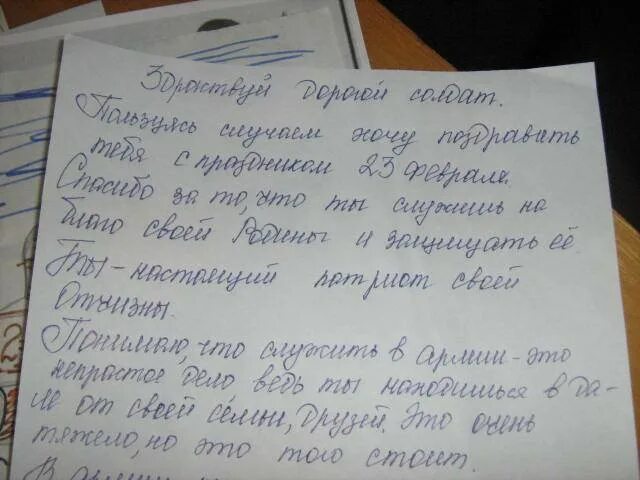 Здраствуй дорогой солдат.
Пользуясь случаем хочу поздравить
тебя с праздником 23 февраля.
Спасибо за то, что ты служишь на
благо своей Родины и защищать её.
Ты - настоящий патриот своей
Отчизны.
Понимаю, что служить в армии - это
непрастое дело ведь ты находишься в да-
ле от своей семьи, друзей. Это очень
тяжело, но это того стоит.
В армии